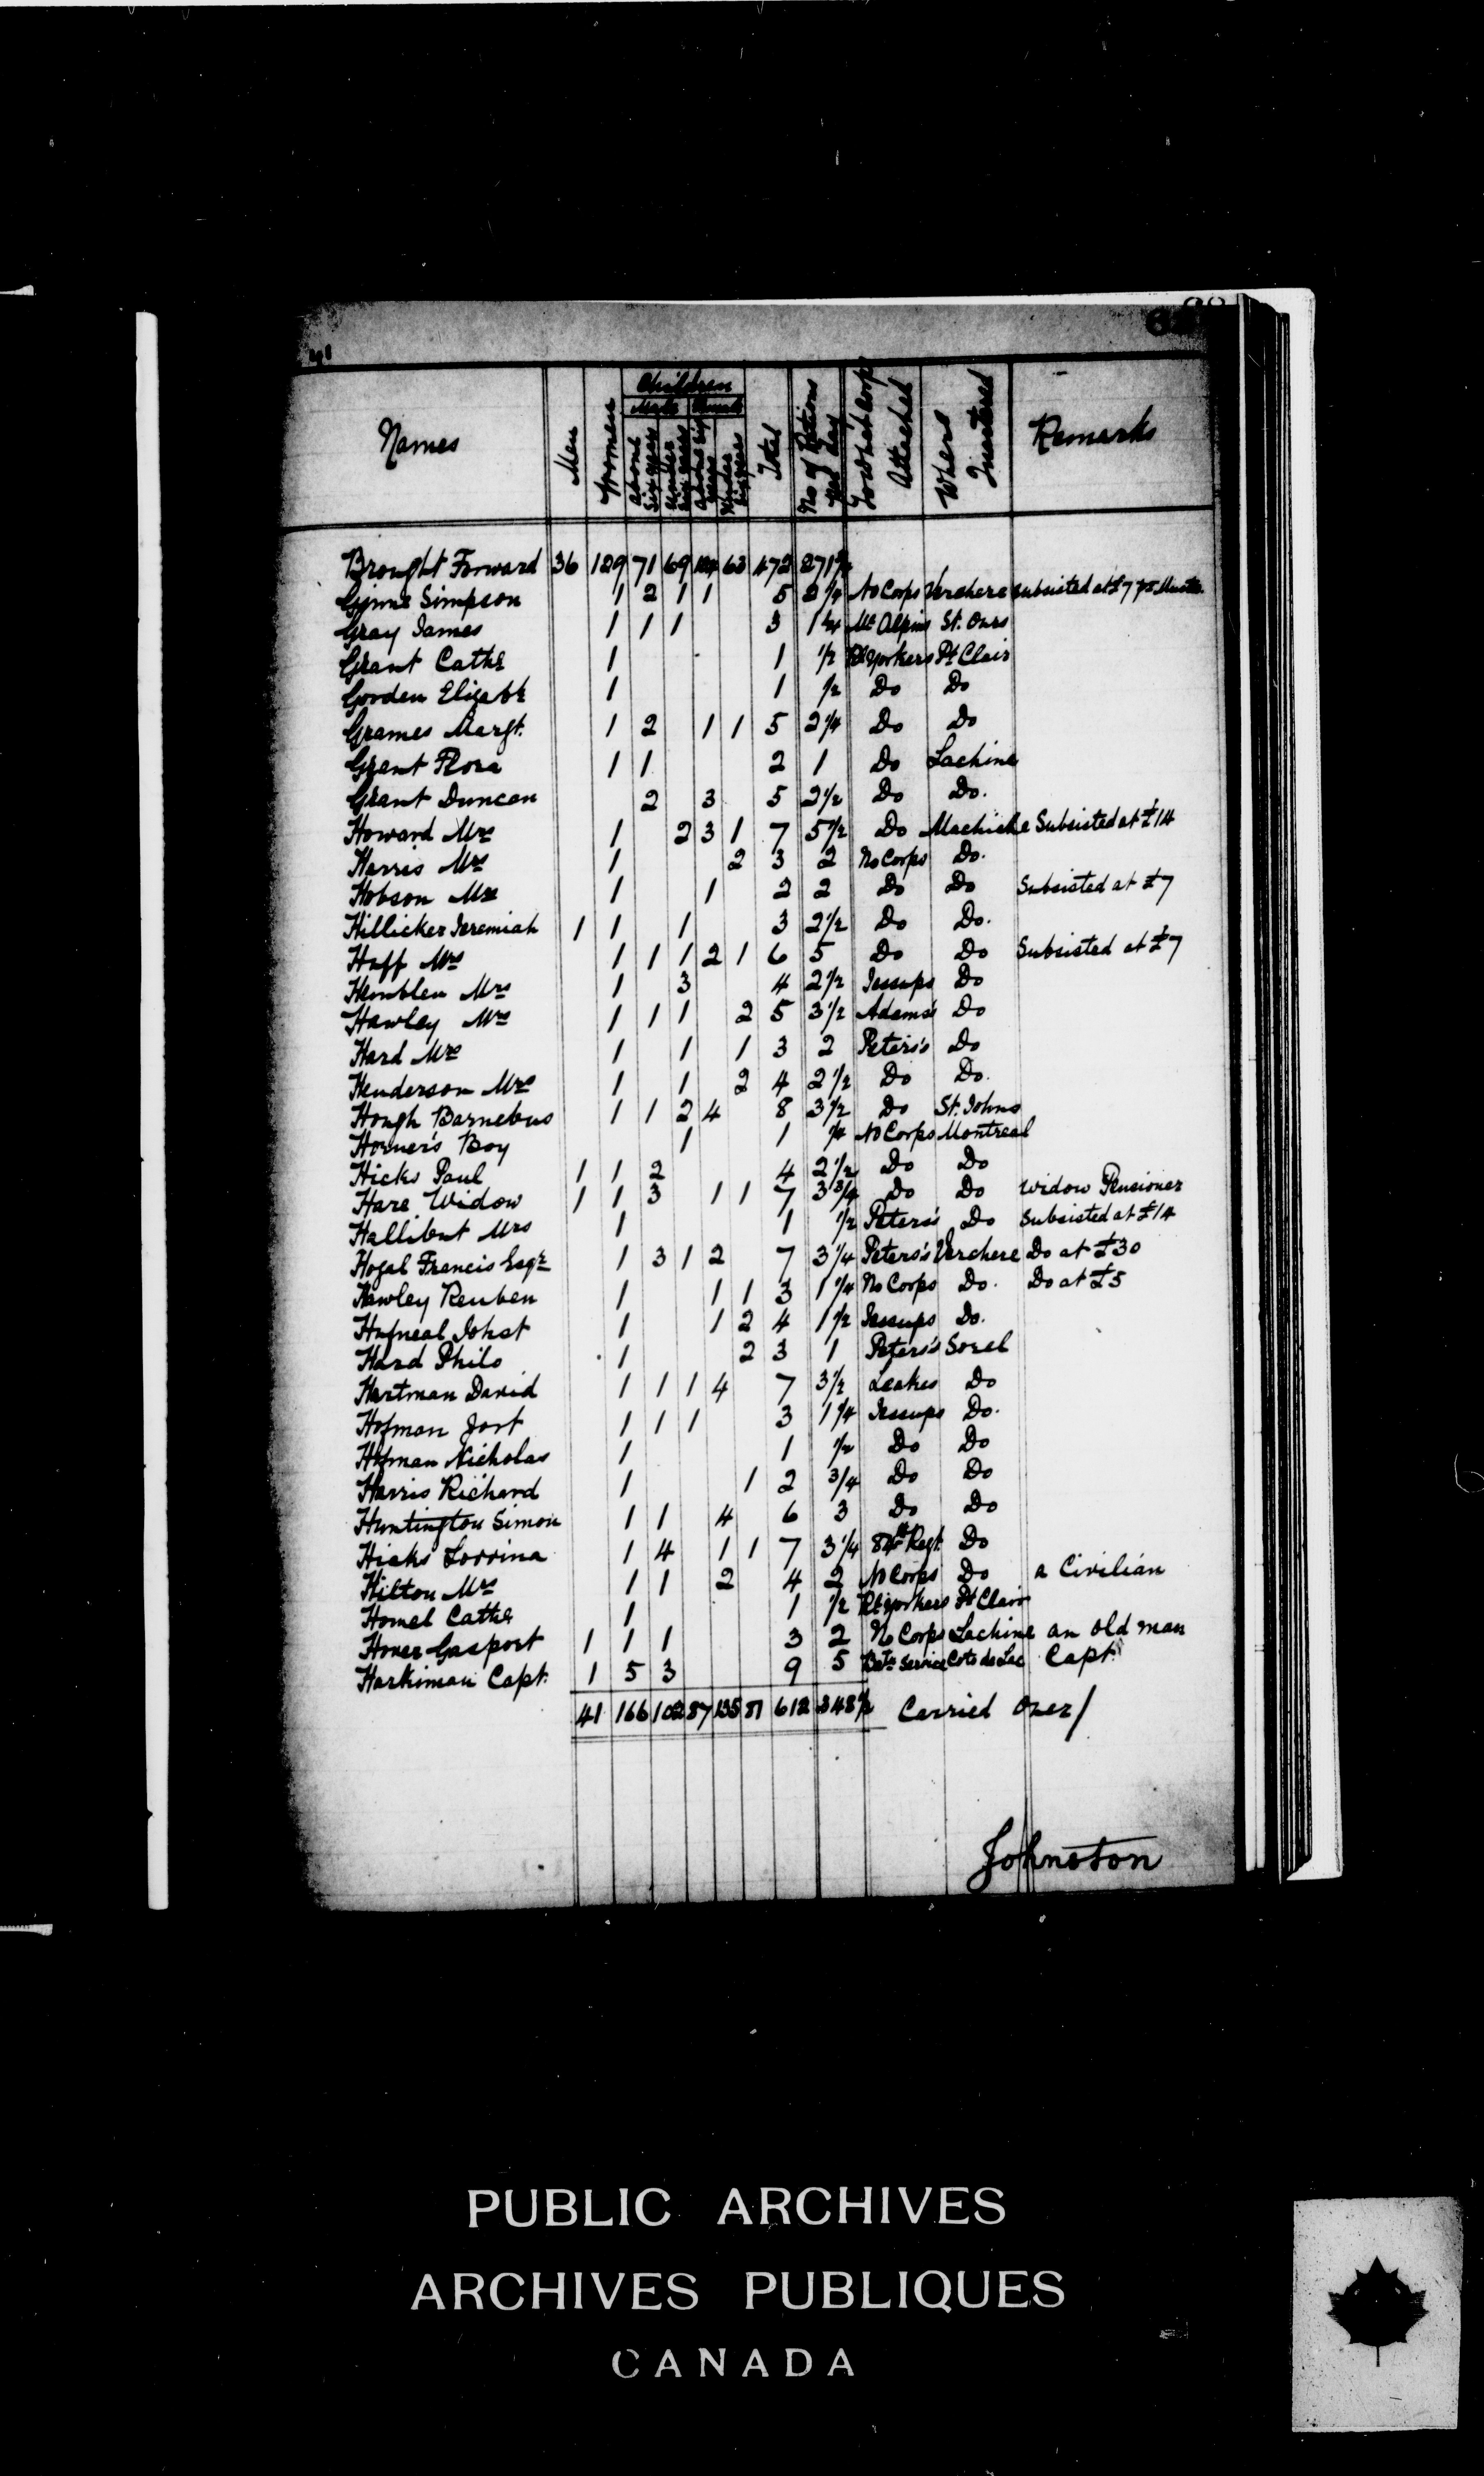 41
Names Men Women Children Total No of Rations per day To what Corp Attached Where Quartered Remarks
Male Female
above six years under six years above six years under six years
Brought Forward 36 129 71 69 104 63 472 271¾
Simpson 1 2 1 1 5 2¼ No Corps Verchere Subsisted at £7
Gray James 1 1 1 3 1¼ Mc Alpins St. Ours
Grant Cathe 1 1 ½ Rl Yorkers Pt Clair
Gorden Elizabt 1 1 ½ Do Do
Grames Margt. 1 2 1 1 5 2¼ Do Do
Grant Flora 1 1 2 1 Do Lachine
Grant Duncan 2 3 5 2½ Do Do.
Howard Mrs 1 2 3 1 7 5½ Do Machiche Subsisted at £14
Harris Mrs 1 2 3 2 No Corps Do.
Hobson Mrs 1 1 2 2 Do Do Subsisted at £7
Hillicker Jeremiah 1 1 1 3 2½ Do Do.
Huff Mrs 1 1 1 2 1 6 5 Do Do Subsisted at £7
Hemblen Mrs 1 3 4 2½ Jessups Do
Hawley Mrs 1 1 1 2 5 3½ Adams's Do
Hard Mrs 1 1 1 3 2 Peters's Do
Henderson Mrs 1 1 2 4 2½ Do Do.
Hough Barnebus 1 1 2 4 8 3½ Do St. Johns
Horner's Boy 1 1 ¼ No Corps Montreal
Hicks Paul 1 1 2 4 2½ Do Do
Hare Widow 1 1 3 1 1 7 3¾ Do Do Widow Pensioner
Hallibut Mrs 1 1 ½ Peters's Do Subsisted at £14
Hogal Francis Esqr 1 3 1 2 7 3¼ Peters's Verchere Do at £30
Hawley Reuben 1 1 1 3 1¼ No Corps Do. Do at £5
Hufneal Johst 1 1 2 4 1½ Jessups Do.
Hard Philo 1 2 3 1 Peters's Sorel
Hartman David 1 1 1 4 7 3½ Leakes Do
Hofman Jost 1 1 1 3 1¼ Jessups Do.
Hofman Nicholas 1 1 ½ Do Do
Harris Richard 1 1 2 ¾ Do Do
Huntington Simon 1 1 4 6 3 Do Do
Hicks Lorrina 1 4 1 1 7 3¼ 84th Regt. Do
Hilton Mrs 1 1 2 4 2 No Corps Do a Civilian
Homel Cathe 1 1 ½ Rl Yorkers Pt Clair
Hover Gasport 1 1 1 3 2 No Corps Lachine an old man
Harkiman Capt. 1 5 3 9 5 Service Coto du Lac Capt.
41 166 102 87 135 81 612 348½ Carried Over/
Johnston
PUBLIC ARCHIVES
ARCHIVES PUBLIQUES
CANADA